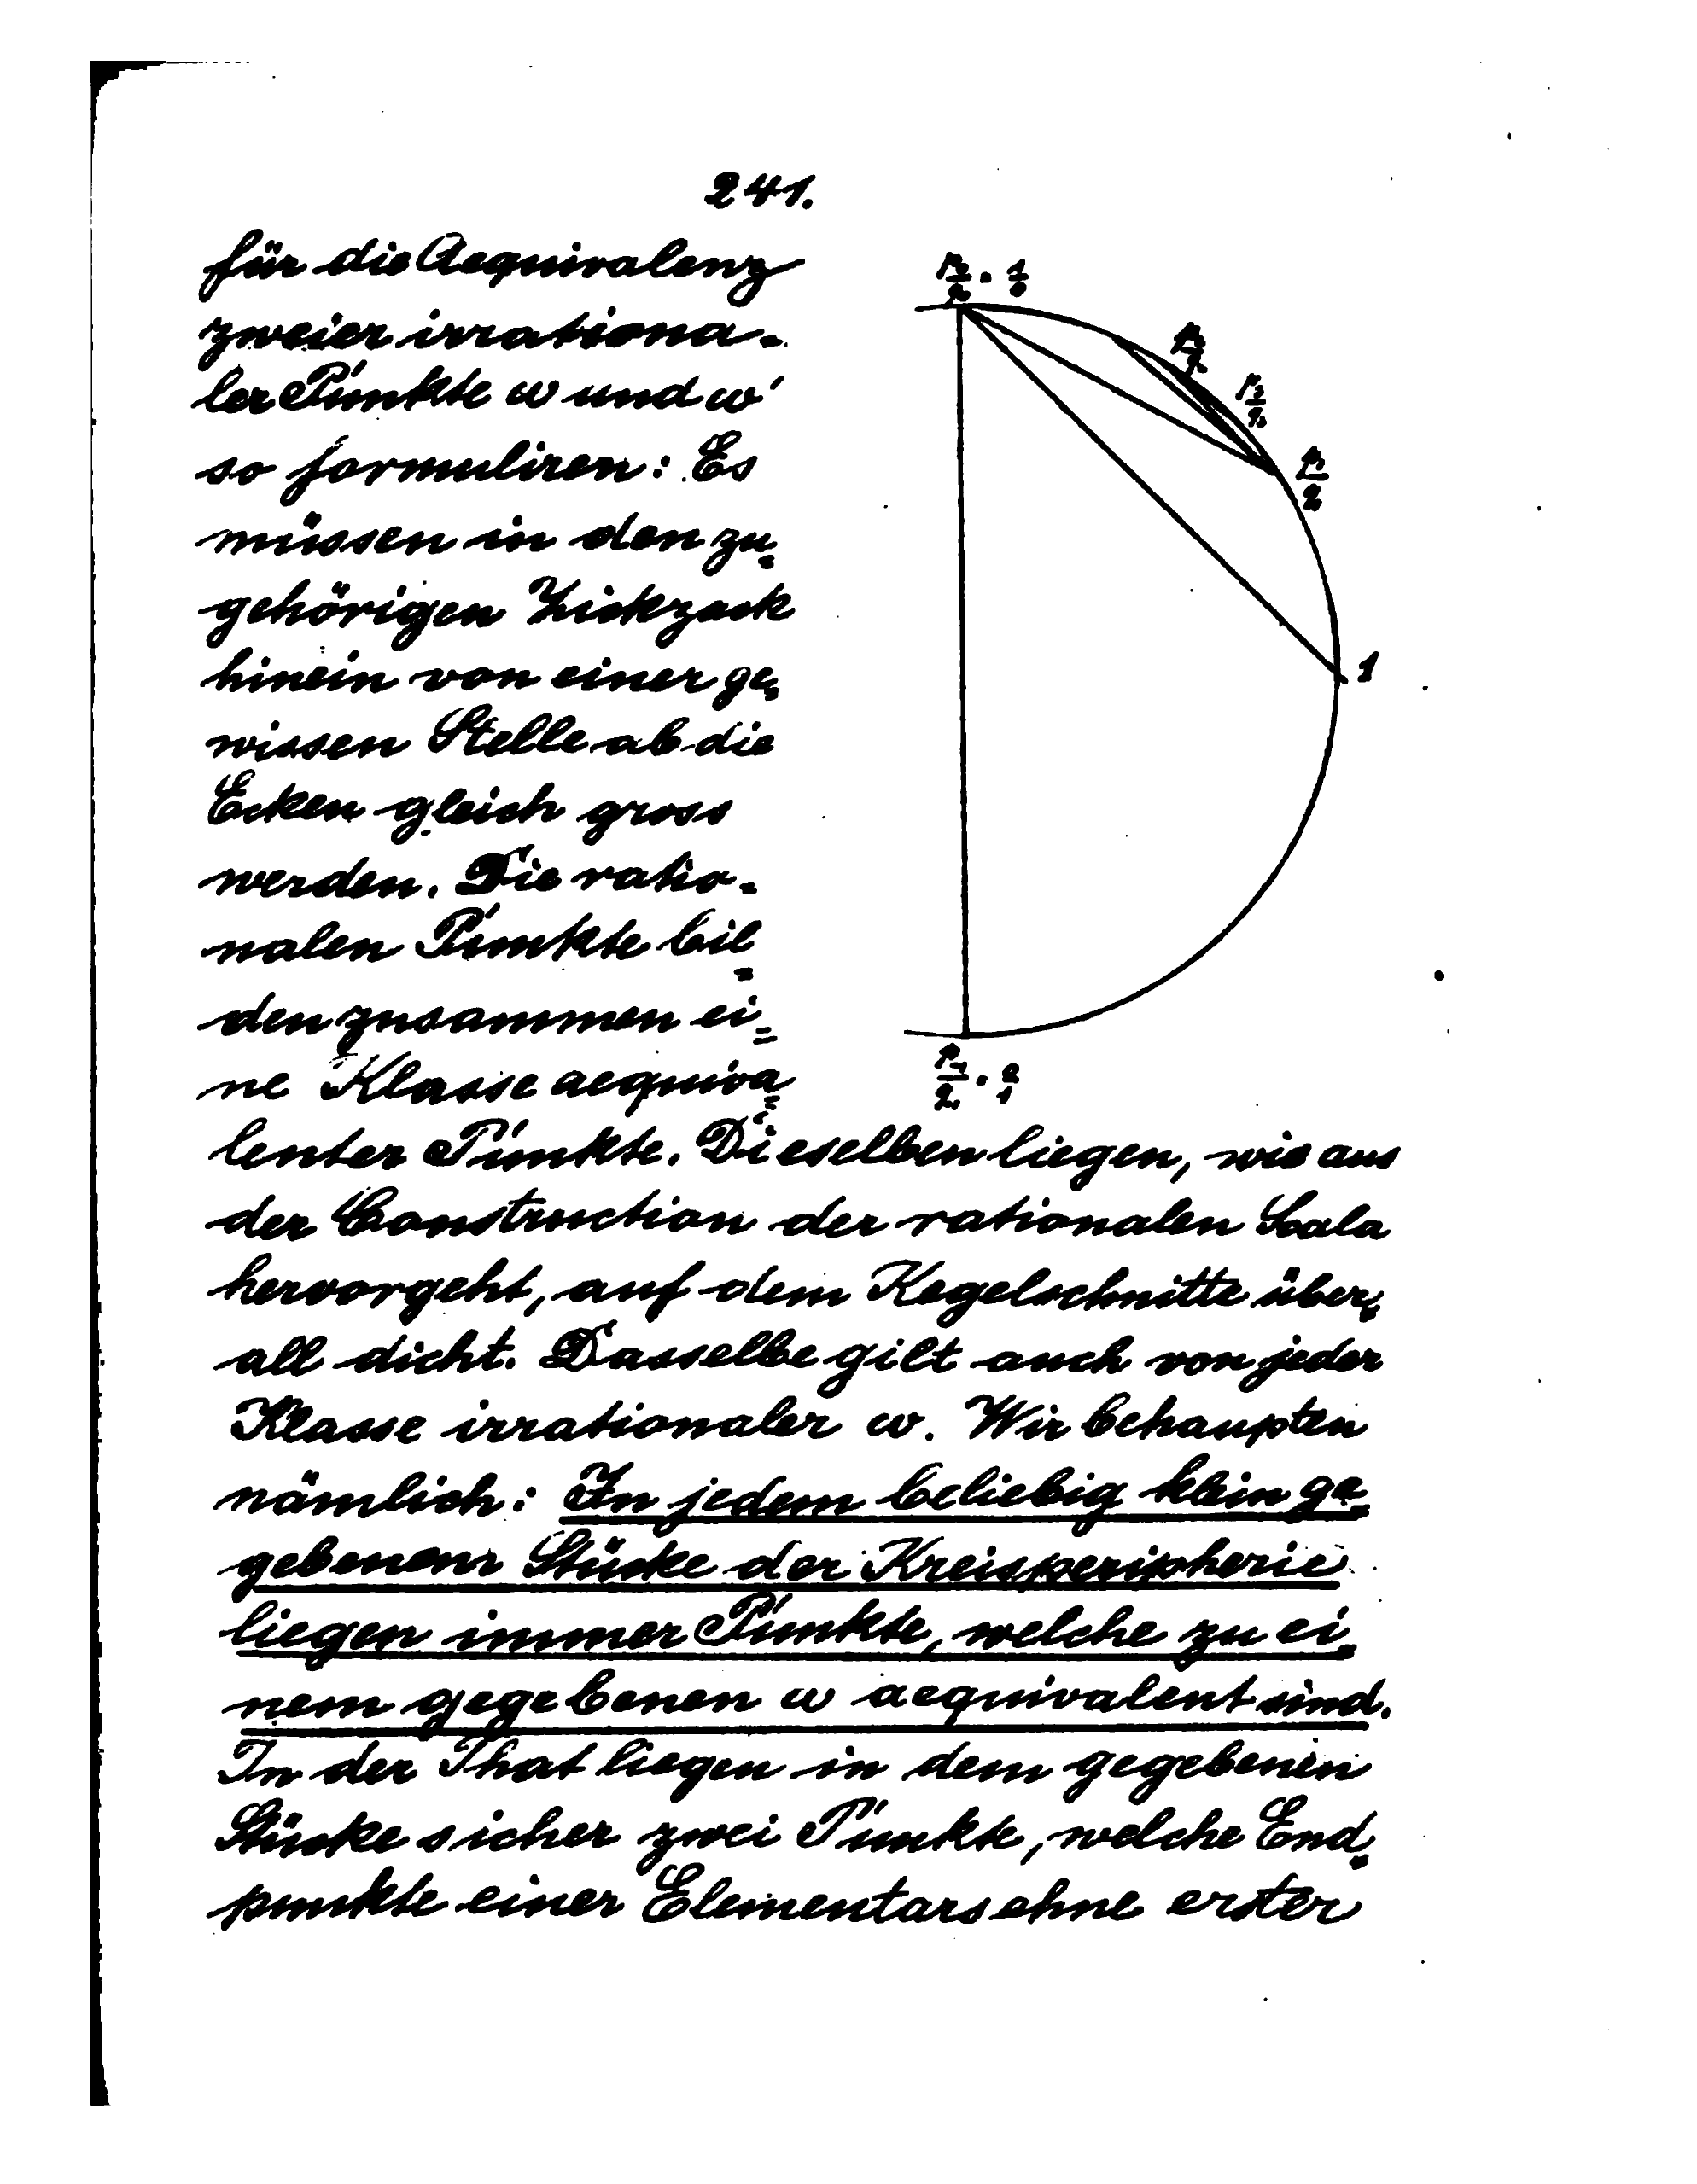 241.
für die Aequivalenz
zweier irrationa-
ler Punkte ω und ω'
so formuliren: Es
müssen in den zu-
gehörigen Zickzack
hinein von einer ge-
wissen Stelle ab die
Ecken gleich gross
werden. Die ratio-
nalen Punkte bil-
den zusammen ei-
ne Klasse aequiva-
lenter Punkte. Dieselben liegen, wie aus
der Construction der rationalen Scala
hervorgeht, auf dem Kegelschnitte über-
all dicht. Dasselbe gilt auch von jeder
Klasse irrationaler ω. Wir behaupten
nämlich: In jedem beliebig klein ge-
gebenem Stücke der Kreisperipherie
liegen immer Punkte, welche zu ei-
nem gegebenen ω aequivalent sind.
In der That liegen in dem gegebenen
Stücke sicher zwei Punkte, welche End-
punkte einer Elementarsehne erster
1